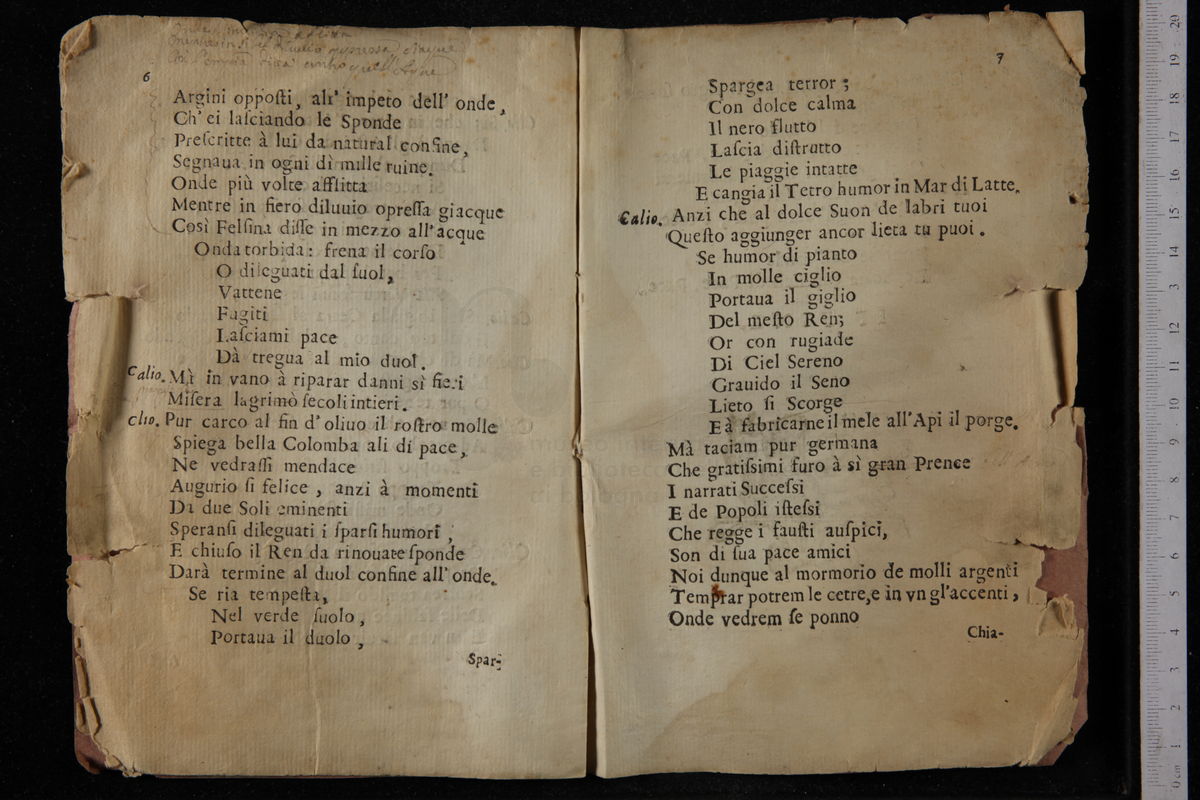 6
Argini oppoſti, all' impeto dell' onde,
Ch' ei laſciando le Sponde
Preſcritte à lui da natural confine,
Segnaua in ogni dì mille ruine.
Onde più volte afflitta
Mentre in fiero diluuio oppreſſa giacque
Così Felſina diſſe in mezzo all' acque
Onda torbida: frena il corſo
O dileguati dal ſuol,
Vattene
Fugiti
Laſciami pace
Dà tregua al mio duol.
Calio. Mà in vano à riparar danni sì fieri
Miſera lagrimò ſecoli intieri.
Clio. Pur carco al fin d' oliuo il roſtro molle
Spiega bella Colomba ali di pace,
Ne vedraſſi mendace
Augurio ſi felice, anzi à momenti
Da due Soli eminenti
Speranſi dileguati i ſparſi humori,
E chiuſo il Ren da rinouate ſponde
Darà termine al duol confine all' onde.
Se ria tempeſta,
Nel verde ſuolo,
Portaua il duolo,
Spar-
7
Spargea terror;
Con dolce calma
Il nero flutto
Laſcia diſtrutto
Le piaggie intatte
E cangia il Tetro humor in Mar di Latte.
Calio. Anzi che al dolce Suon de labri tuoi
Queſto aggiunger ancor lieta tu puoi.
Se humor di pianto
In molle ciglio
Portaua il giglio
Del meſto Ren;
Or con rugiade
Di Ciel Sereno
Grauido il Seno
Lieto ſi Scorge
E à fabricarne il mele all' Api il porge.
Mà taciam pur germana
Che gratiſsimi furo à sì gran Prence
I narrati Succeſsi
E de Popoli iſteſsi
Che regge i fauſti auſpici,
Son di ſua pace amici
Noi dunque al mormorio de molli argenti
Temprar potrem le cetre, e in vn gl' accenti,
Onde vedrem ſe ponno
Chia-